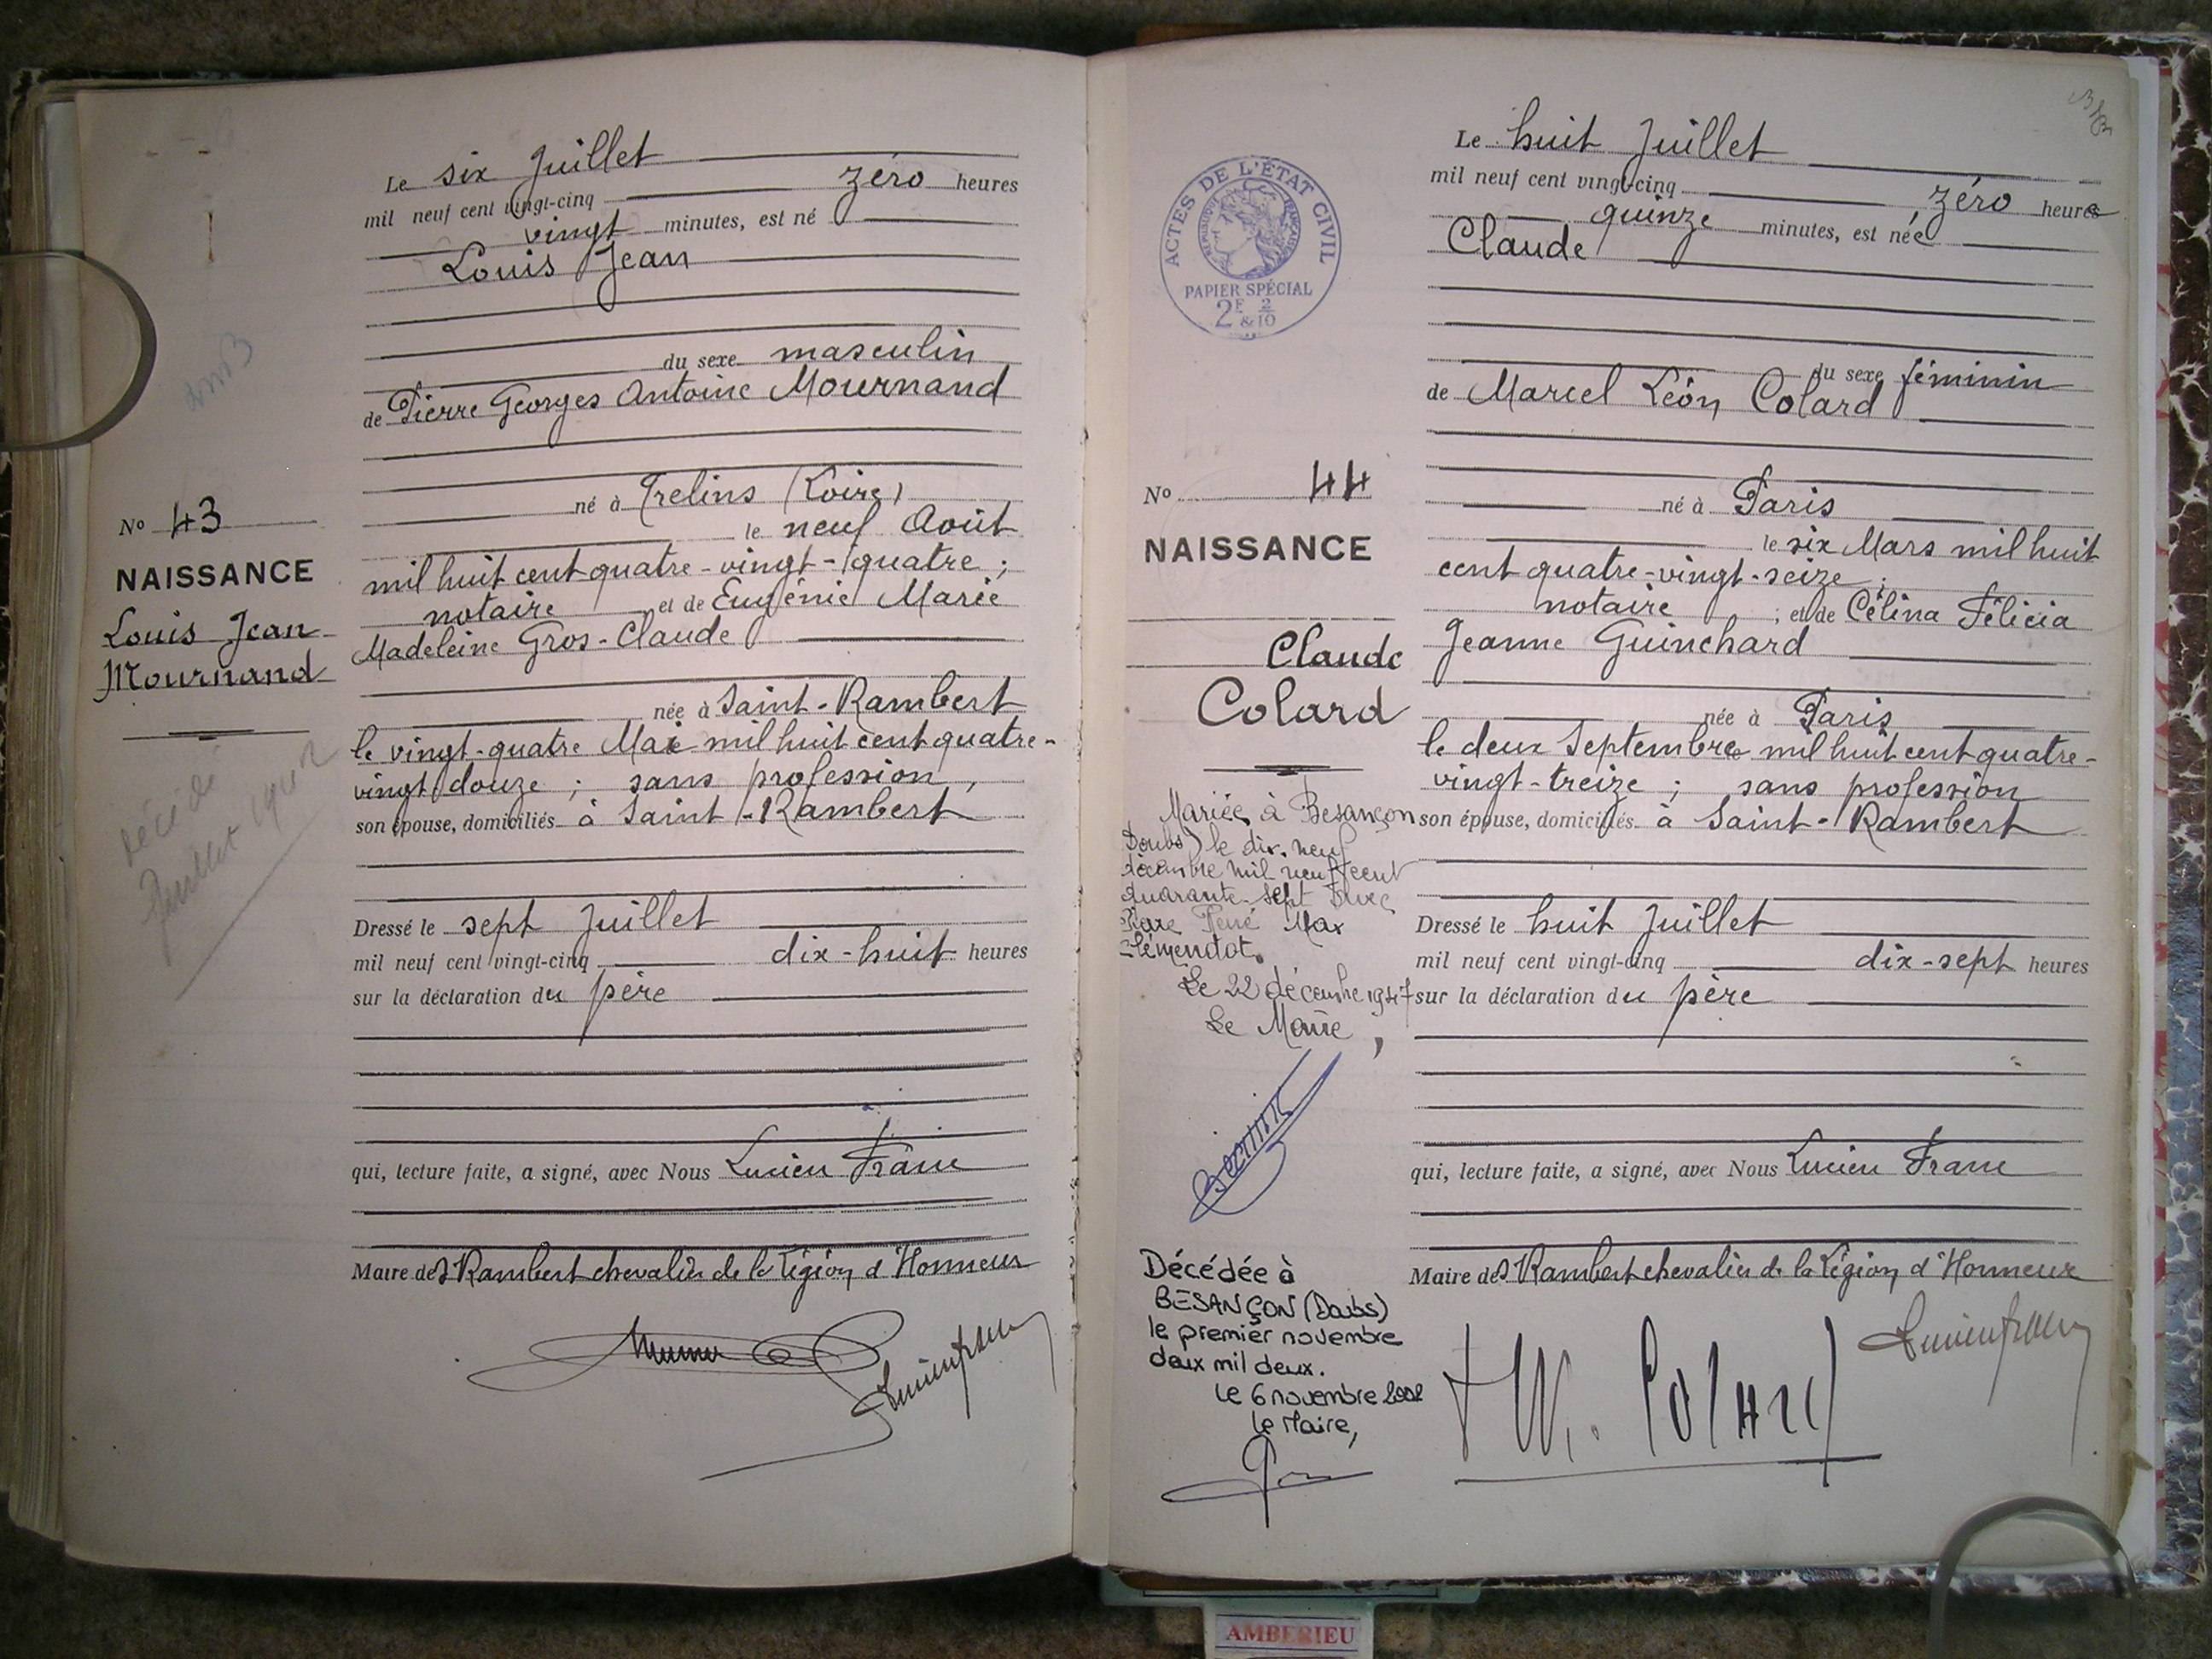 Le six Juillet
mil neuf cent vingt-cinq zéro heures
vingt minutes, est né
Louis Jean
du sexe masculin
de Pierre Georges Antoine Mournand
né à Trelins (Loire)
le neuf Août
mil huit cent quatre-vingt-quatre ;
notaire et de Eugénie Marie
Madeleine Gros-Claude
née à Saint-Rambert
le vingt-quatre Mai mil huit cent quatre-
vingt douze ; sans profession,
son épouse, domiciliés à Saint-Rambert
Dressé le sept Juillet
mil neuf cent vingt-cinq dix-huit heures
sur la déclaration du père
qui, lecture faite, a signé, avec Nous Lucien Franc
Maire de St Rambert chevalier de la Légion d'Honneur
No 43
NAISSANCE
Louis Jean
Mournand
décédé
Juillet
Le huit Juillet
mil neuf cent vingt-cinq zéro heures
quinze minutes, est née
Claude
du sexe féminin
de Marcel Léon Colard
né à Paris
le six Mars mil huit
cent quatre-vingt-seize ;
notaire ; et de Célina Félicia
Jeanne Guinchard
née à Paris
le deux Septembre mil huit cent quatre-
vingt-treize ; sans profession
son épouse, domiciliés à Saint-Rambert
Dressé le huit Juillet
mil neuf cent vingt-cinq dix-sept heures
sur la déclaration du père
qui, lecture faite, a signé, avec Nous Lucien Franc
Maire de St Rambert chevalier de la Légion d'Honneur
M. Colard
ACTES DE L'ÉTAT CIVIL
RÉPUBLIQUE FRANÇAISE
PAPIER SPÉCIAL
2F & 2/10
No 44
NAISSANCE
Claude
Colard
Mariée à Besançon
Doubs) le dix-neuf
décembre mil neuf cent
quarante-sept avec
Pierre René Max
Clémendot.
Le 22 décembre 1947
Le Maire,
Décédée à
BESANÇON (Doubs)
le premier novembre
deux mil deux.
Le 6 novembre 2002
Le Maire,
AMBERIEU